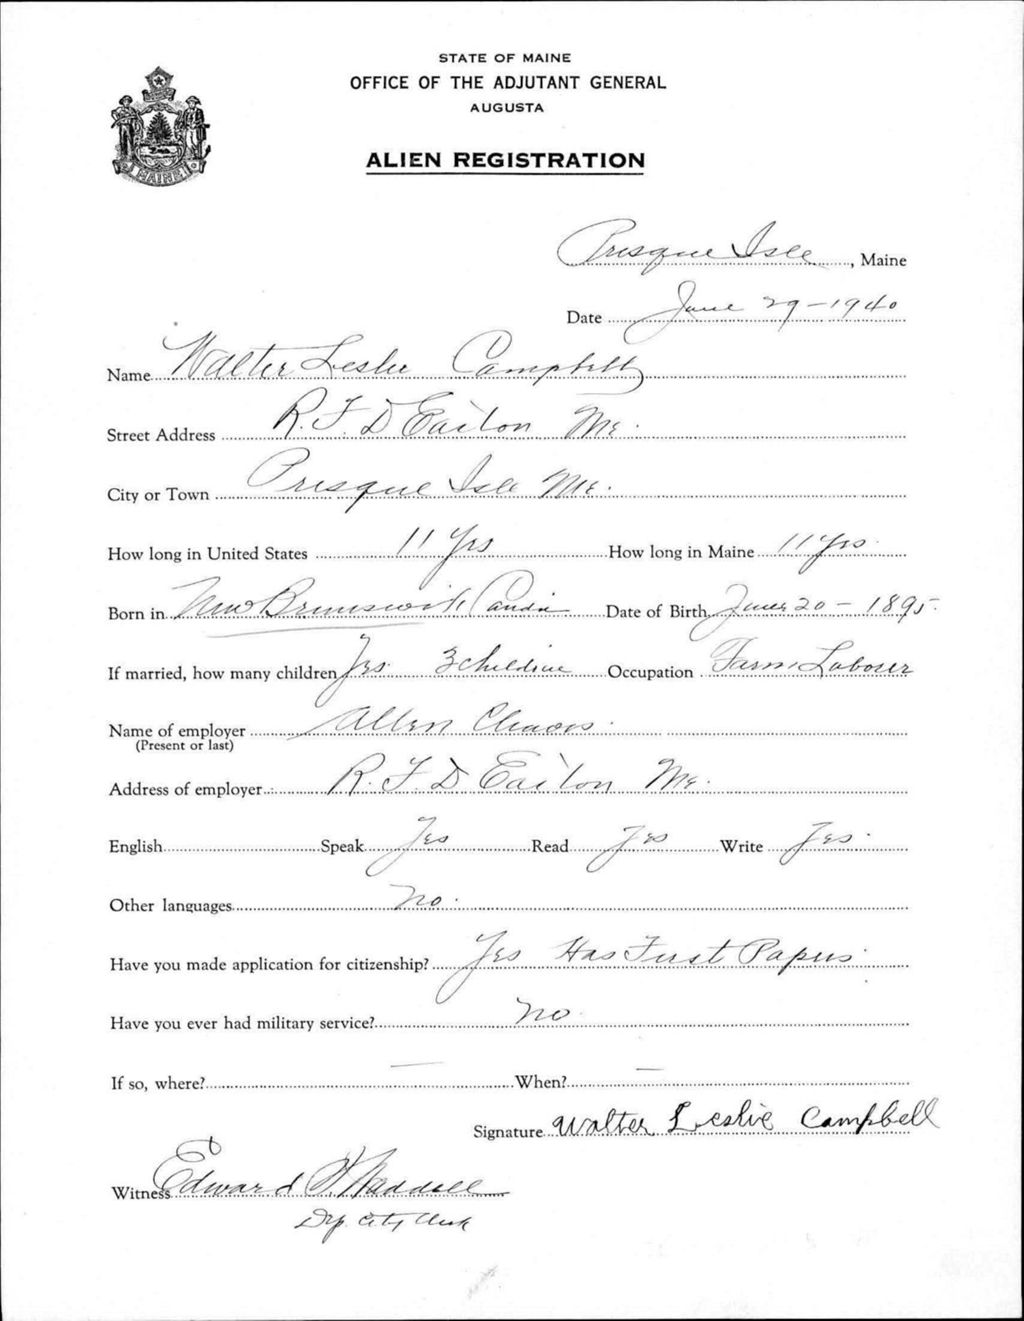 STATE OF MAINE
OFFICE OF THE ADJUTANT GENERAL
AUGUSTA
MAINE
ALIEN REGISTRATION
Presque Isle, Maine
Date June 29-1940
Name Walter Leslie Campbell
Street Address R.F.D Easton Me.
City or Town Presque Isle Me.
How long in United States 11 Yrs How long in Maine 11 Yrs.
Born in New Brunswick Date of Birth June 20 - 1895.
If married, how many children Yes. 3 Occupation Farm Laborer
Name of employer Allen
(Present or last)
Address of employer R.F.D Easton Me.
English Speak Yes Read Yes Write Yes.
Other languages No.
Have you made application for citizenship? Yes Has First Papers.
Have you ever had military service? No.
If so, where? — When? —
Signature Walter Leslie Campbell
Witness Edward
Dep. City Clerk